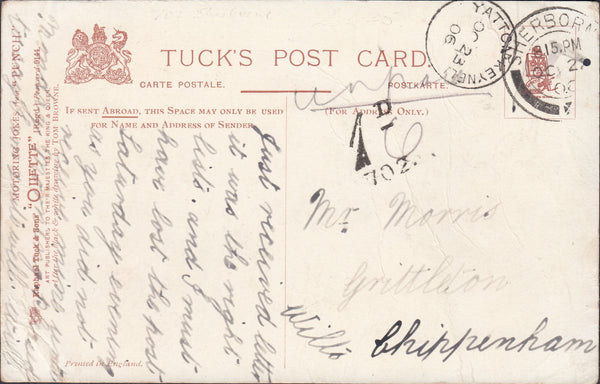 TUCK'S POST CARD.
CARTE POSTALE.
POSTKARTE.
IF SENT ABROAD, THIS SPACE MAY ONLY BE USED
FOR NAME AND ADDRESS OF SENDER.
(FOR ADDRESS ONLY.)
YATTON KEYNELL
OC 23
06
SHERBORN
8 15 PM
OC 2
06
1D
702
Just received letter
it was the right
lists. and I must
have lost the post
Saturday evening
as you did not
Mr Morris
Grittleton
Wilts
Chippenham
Raphael Tuck & Sons' "OILETTE"
MOTORING JOKES FROM "PUNCH"
ART PUBLISHERS TO THEIR MAJESTIES THE KING & QUEEN
TOM BROWNE.
Printed in England.